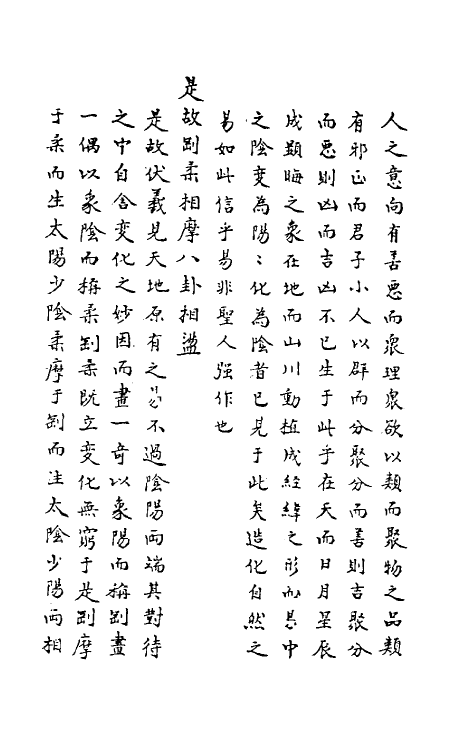 人之意向有善惡而衆理衆欲以類而聚物之品類
有邪正而君子小人以群而分聚分而善則吉聚分
而惡則凶而吉凶不已生于此乎在天而日月星辰
成顯晦之象在地而山川動植成經緯之形而其中
之陰變為陽〻化為陰者已見于此矣造化自然之
易如此信乎易非聖人强作也
是故剛柔相摩八卦相盪
是故伏羲見天地原有之易不過陰陽兩端其對待
之中自含變化之妙因而畫一奇以象陽而稱剛畫
一偶以象陰而稱柔剛柔既立變化無窮于是剛摩
于柔而生太陽少陰柔摩于剛而生太陰少陽兩相